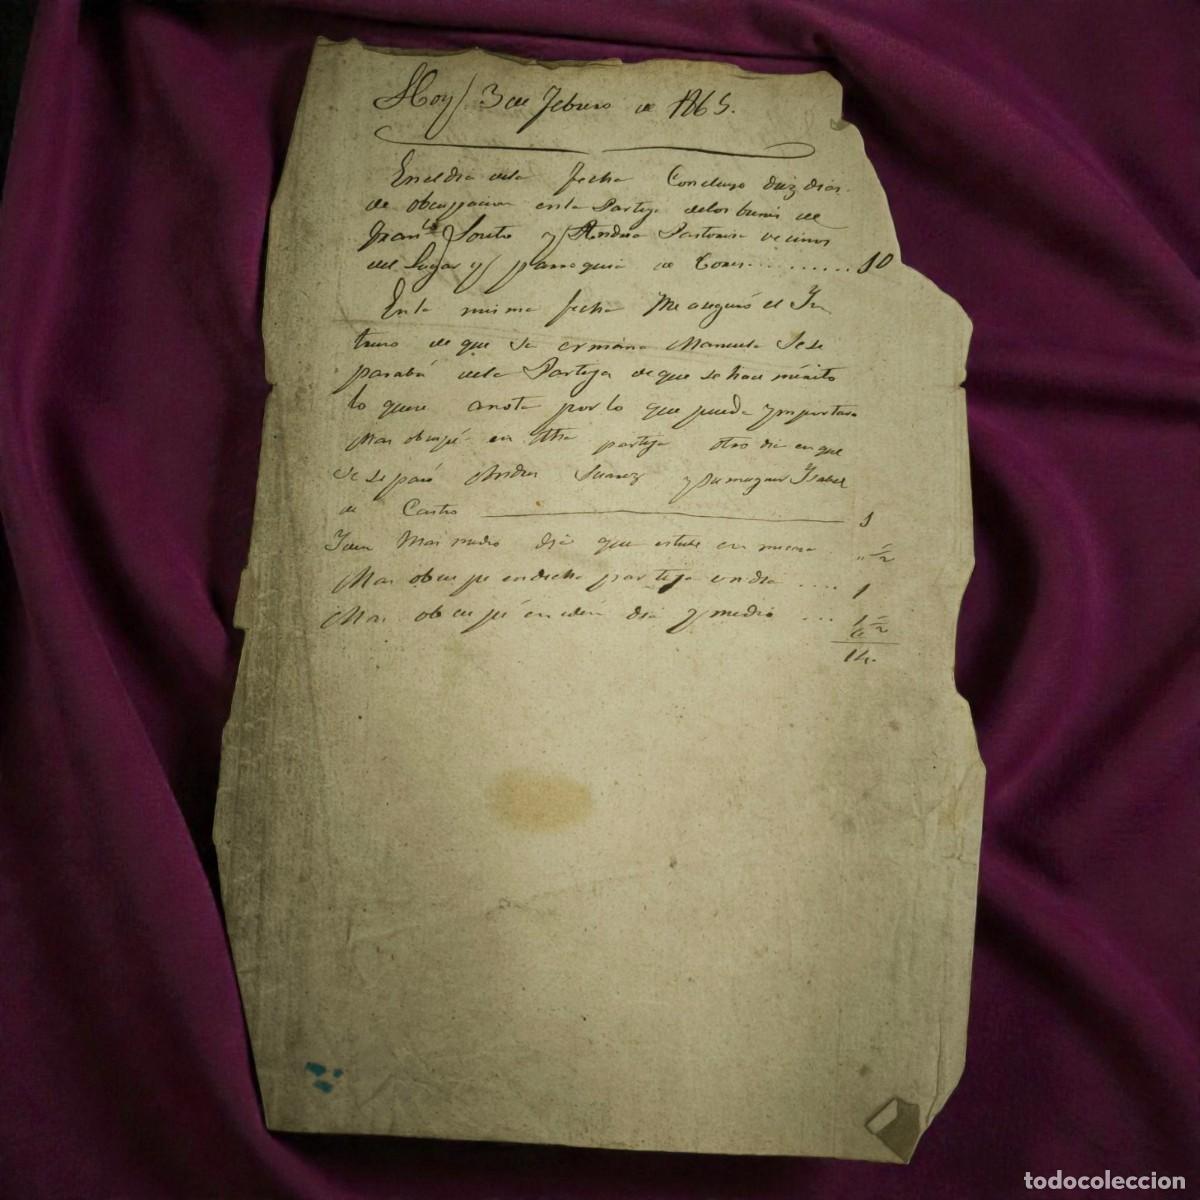 Hoy 3 de Febrero de 1865.
En el dia de la fecha Concluyo diez dias
de obcupacion en la Partija de los bienes de
Fran.co y Andrea vecinos
del Lugar y parroquia de .......... 10
En la misma fecha Me aseguró el
de que su ermana Manuela Se se
paraba de la Partija de que se hace mérito
lo que se anota por lo que pueda ymportar
Mas obcupé en dha partija otro dia en que
Se se paró Andres Suarez y su muger Ysabel
de Castro 1
Yden Mas medio dia que estube en mersa " 1/2
Mas obcupe en dicha partija un dia .... 1
Mas obcupé en iden dia y medio ... 1 1/2
14.
todocoleccion